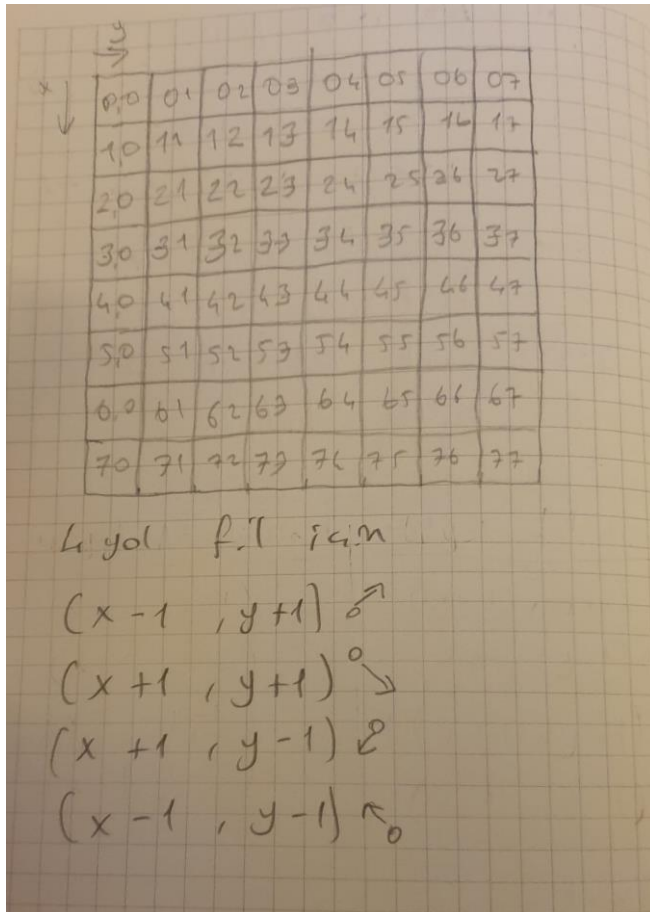 y
x
0,0 01 02 03 04 05 06 07
1,0 11 12 13 14 15 16 17
2,0 21 22 23 24 25 26 27
3,0 31 32 33 34 35 36 37
4,0 41 42 43 44 45 46 47
5,0 51 52 53 54 55 56 57
6,0 61 62 63 64 65 66 67
70 71 72 73 74 75 76 77
4 yol fil için
(x-1 , y+1)
(x+1 , y+1)
(x +1 , y-1)
(x-1 , y-1)